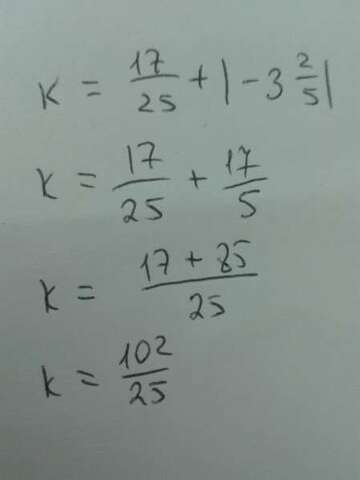 K = 17/25 + |-3 2/5|
K = 17/25 + 17/5
K = (17 + 85)/25
K = 102/25